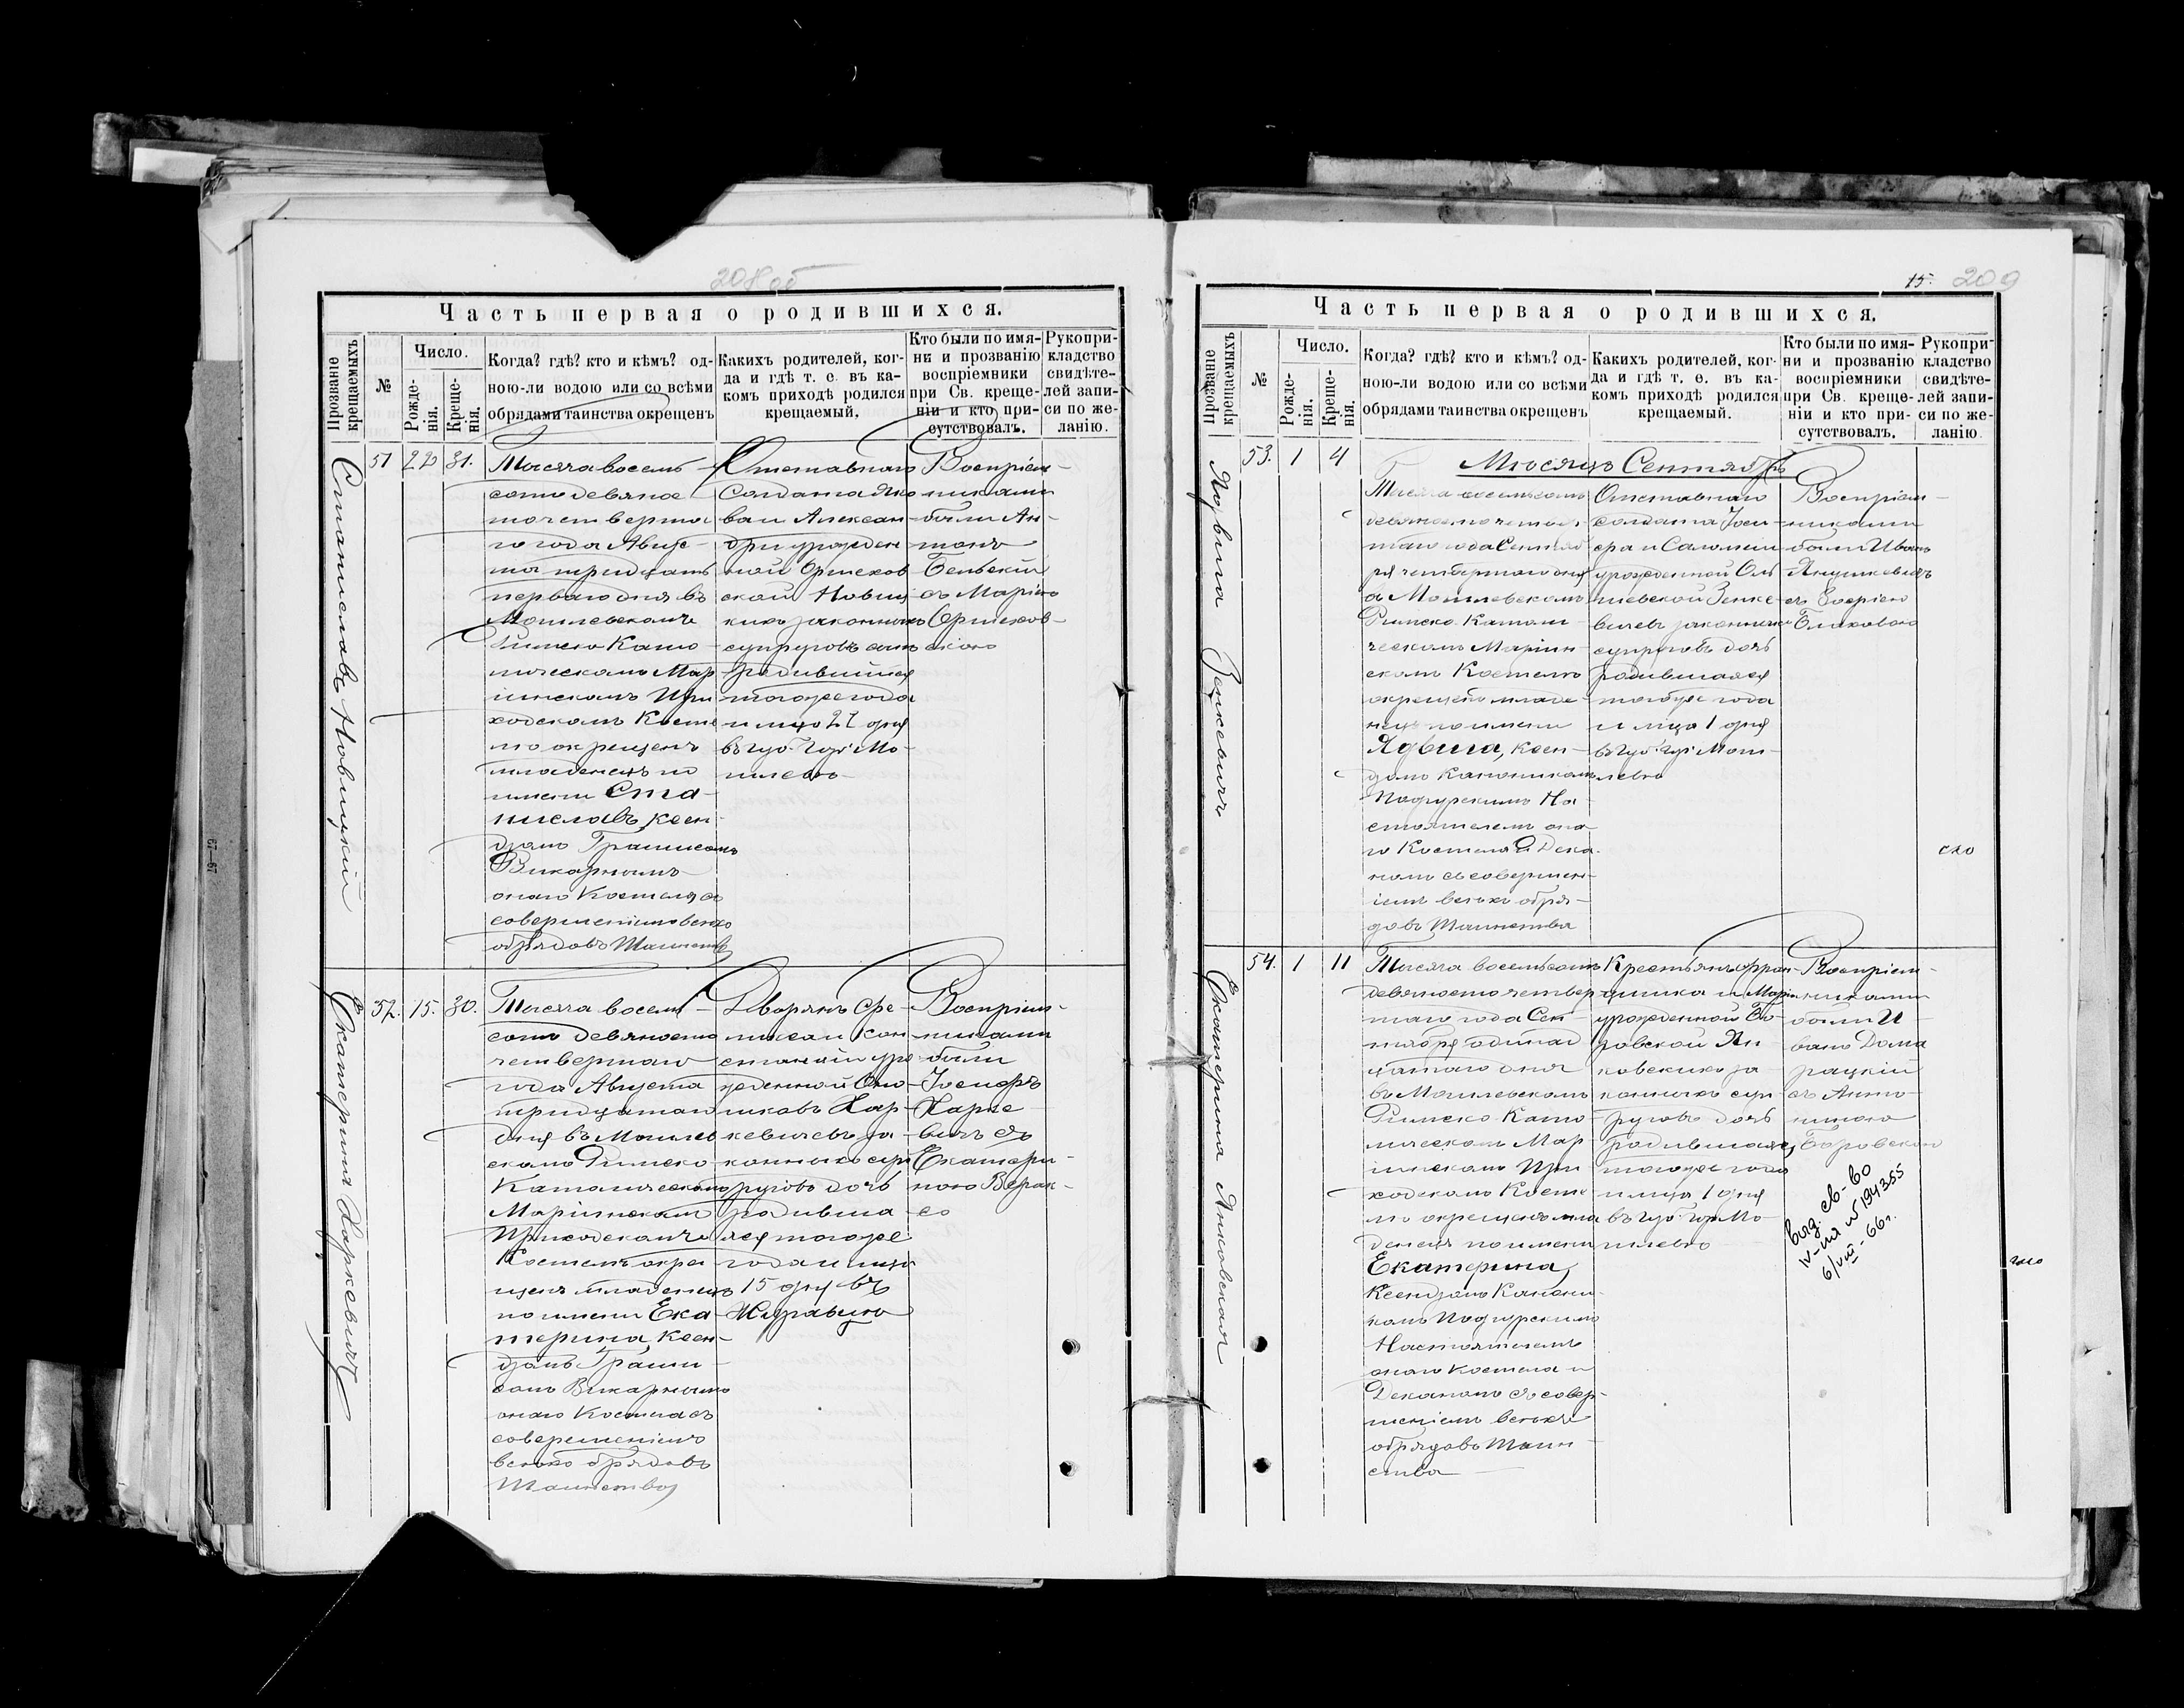 208 об
Часть первая о родившихся.
Прозваніе крещаемыхъ
№
Число.
Рожде-
нія.
Креще-
нія.
Когда? гдѣ? кто и кѣмъ? од-
ною-ли водою или со всѣми
обрядами таинства окрещенъ
Какихъ родителей, ког-
да и гдѣ т. е. въ ка-
комъ приходѣ родился
крещаемый.
Кто были по имя-
ни и прозванію
воспріемники
при Св. креще-
ніи и кто при-
сутствовалъ.
Рукопри-
кладство
свидѣте-
лей запи-
си по же-
ланію.
Станиславъ Новицкій
51
31.
Тысяча восемь-
сотъ девянос-
та четверта-
го года Авгус-
та тридцать
перваго дня въ
Могилевскомъ
Римско Като-
лическомъ Мар
іинскомъ При
ходскомъ Косте
лѣ окрещенъ
младенецъ по
имени Ста-
ниславъ, ксен-
дзомъ
Викарнымъ
онаго Костела съ
совершеніемъ всѣхъ
обрядовъ Таинства
Отставнаго
Солдата Яко
ва и Алексан-
дры урожден
ной Оржехов
ской Новиц
кихъ законныхъ
супруговъ сынъ
родившійся
того же года
и мца 22 дня
въ губ. гор. Мо-
гилевѣ
Воспріем-
никами
были Ан-
тонъ
Бельскій
съ Маріею
Оржехов-
скою
Екатерина Харкевичъ
52.
15.
30.
Тысяча восемь-
сотъ девяносто
четвертаго
года Августа
тридцатаго
дня въ Могилев
скомъ Римско
Католическомъ
Маріинскомъ
Приходскомъ
Костелѣ окре
щенъ младенецъ
по имени Ека-
терина, ксен-
дзомъ
Викарнымъ
онаго Костела съ
совершеніемъ
всѣхъ обрядовъ
Таинства
Дворянъ
и Кон
станціи уро
жденной
Хар-
кевичевъ за
конныхъ суп
руговъ дочь
родивша
яся того же
года и мца
15 дня въ
Воспріем-
никами
были
Іосифъ
Харке
вичъ съ
Екатери-
ною
15.
209
Часть первая о родившихся.
Прозваніе крещаемыхъ
№
Число.
Рожде-
нія.
Креще-
нія.
Когда? гдѣ? кто и кѣмъ? од-
ною-ли водою или со всѣми
обрядами таинства окрещенъ
Какихъ родителей, ког-
да и гдѣ т. е. въ ка-
комъ приходѣ родился
крещаемый.
Кто были по имя-
ни и прозванію
воспріемники
при Св. креще-
ніи и кто при-
сутствовалъ.
Рукопри-
кладство
свидѣте-
лей запи-
си по же-
ланію.
Ядвига Зенкевичъ
53.
1
4
Мѣсяцъ Сентябрь
Тысяча восемьсотъ
девяносто четвер-
таго года Сентяб
ря четвертаго дня
въ Могилевскомъ
Римско Католи-
ческомъ Маріин-
скомъ Костелѣ
окрещенъ младе-
нецъ по имени
Ядвига, ксен-
дзомъ Каноникомъ
Подгурскимъ На-
стоятелемъ она-
го Костела и Дека-
номъ съ совершен-
іемъ всѣхъ обря-
довъ Таинства
Отставнаго
солдата Іоси-
фа и Саломеи
урожденной
Зенке-
вичевъ законныхъ
супруговъ дочь
родившаяся
того же года
и мца 1 дня
въ губ. гор. Моги-
левѣ
Воспріем-
никами
были Иванъ
Янушкевичъ
съ
Екатерина Янковская
54.
1
11
Тысяча восемьсотъ
девяносто четвер-
таго года Сен-
тября одинад
цатаго дня
въ Могилевскомъ
Римско Като-
лическомъ Мар-
іинскомъ При-
ходскомъ Косте
лѣ окрещенъ мла
денецъ по имени
Екатерина,
Ксендзомъ Канони-
комъ Подгурскимъ
Настоятелемъ
онаго Костела и
Деканомъ съ совер-
шеніемъ всѣхъ
обрядовъ Таин-
ства
Крестьянъ Фран-
цишка и Маріи
урожденной
Ян-
ковскихъ за
конныхъ суп
руговъ дочь
родившаяся
того же года
и мца 1 дня
въ губ. гор. Мо-
гилевѣ
Воспріем-
никами
были И-
ванъ Дома
рацкій
съ Анто-
ниною
выд. св-во
IV-ИА № 194355
6/VIII-66г.